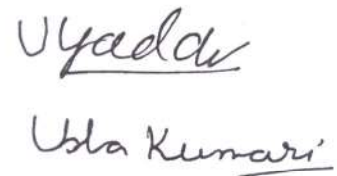 UYadav
Usha Kumari